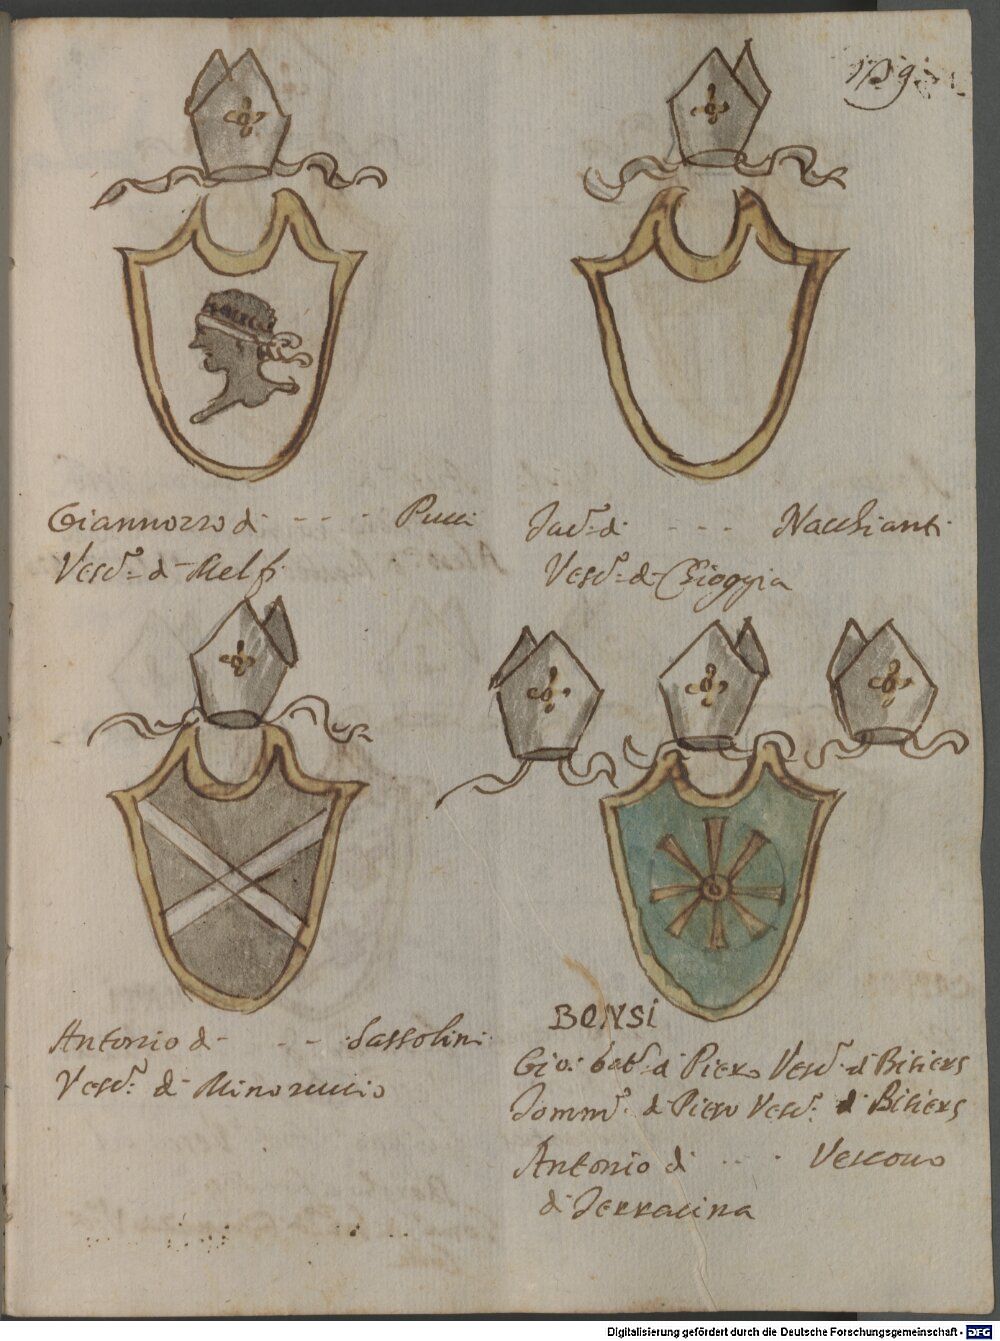 139
Giannozzo di - - - Pucci
Vesc.º di Melfi
Jac.º di - - - Nacchianti
Vesc.º di Chioggia
Antonio di - - - Sassolini
Vesc.º di Minorvicio
BONSI
Gio: batt.ª di Piero Vesc.º di Bisiers
Tomm.º di Piero Vesc.º di Bisiers
Antonio di - - - Vescovo
di Terracina
Digitalisierung gefördert durch die Deutsche Forschungsgemeinschaft - DFG